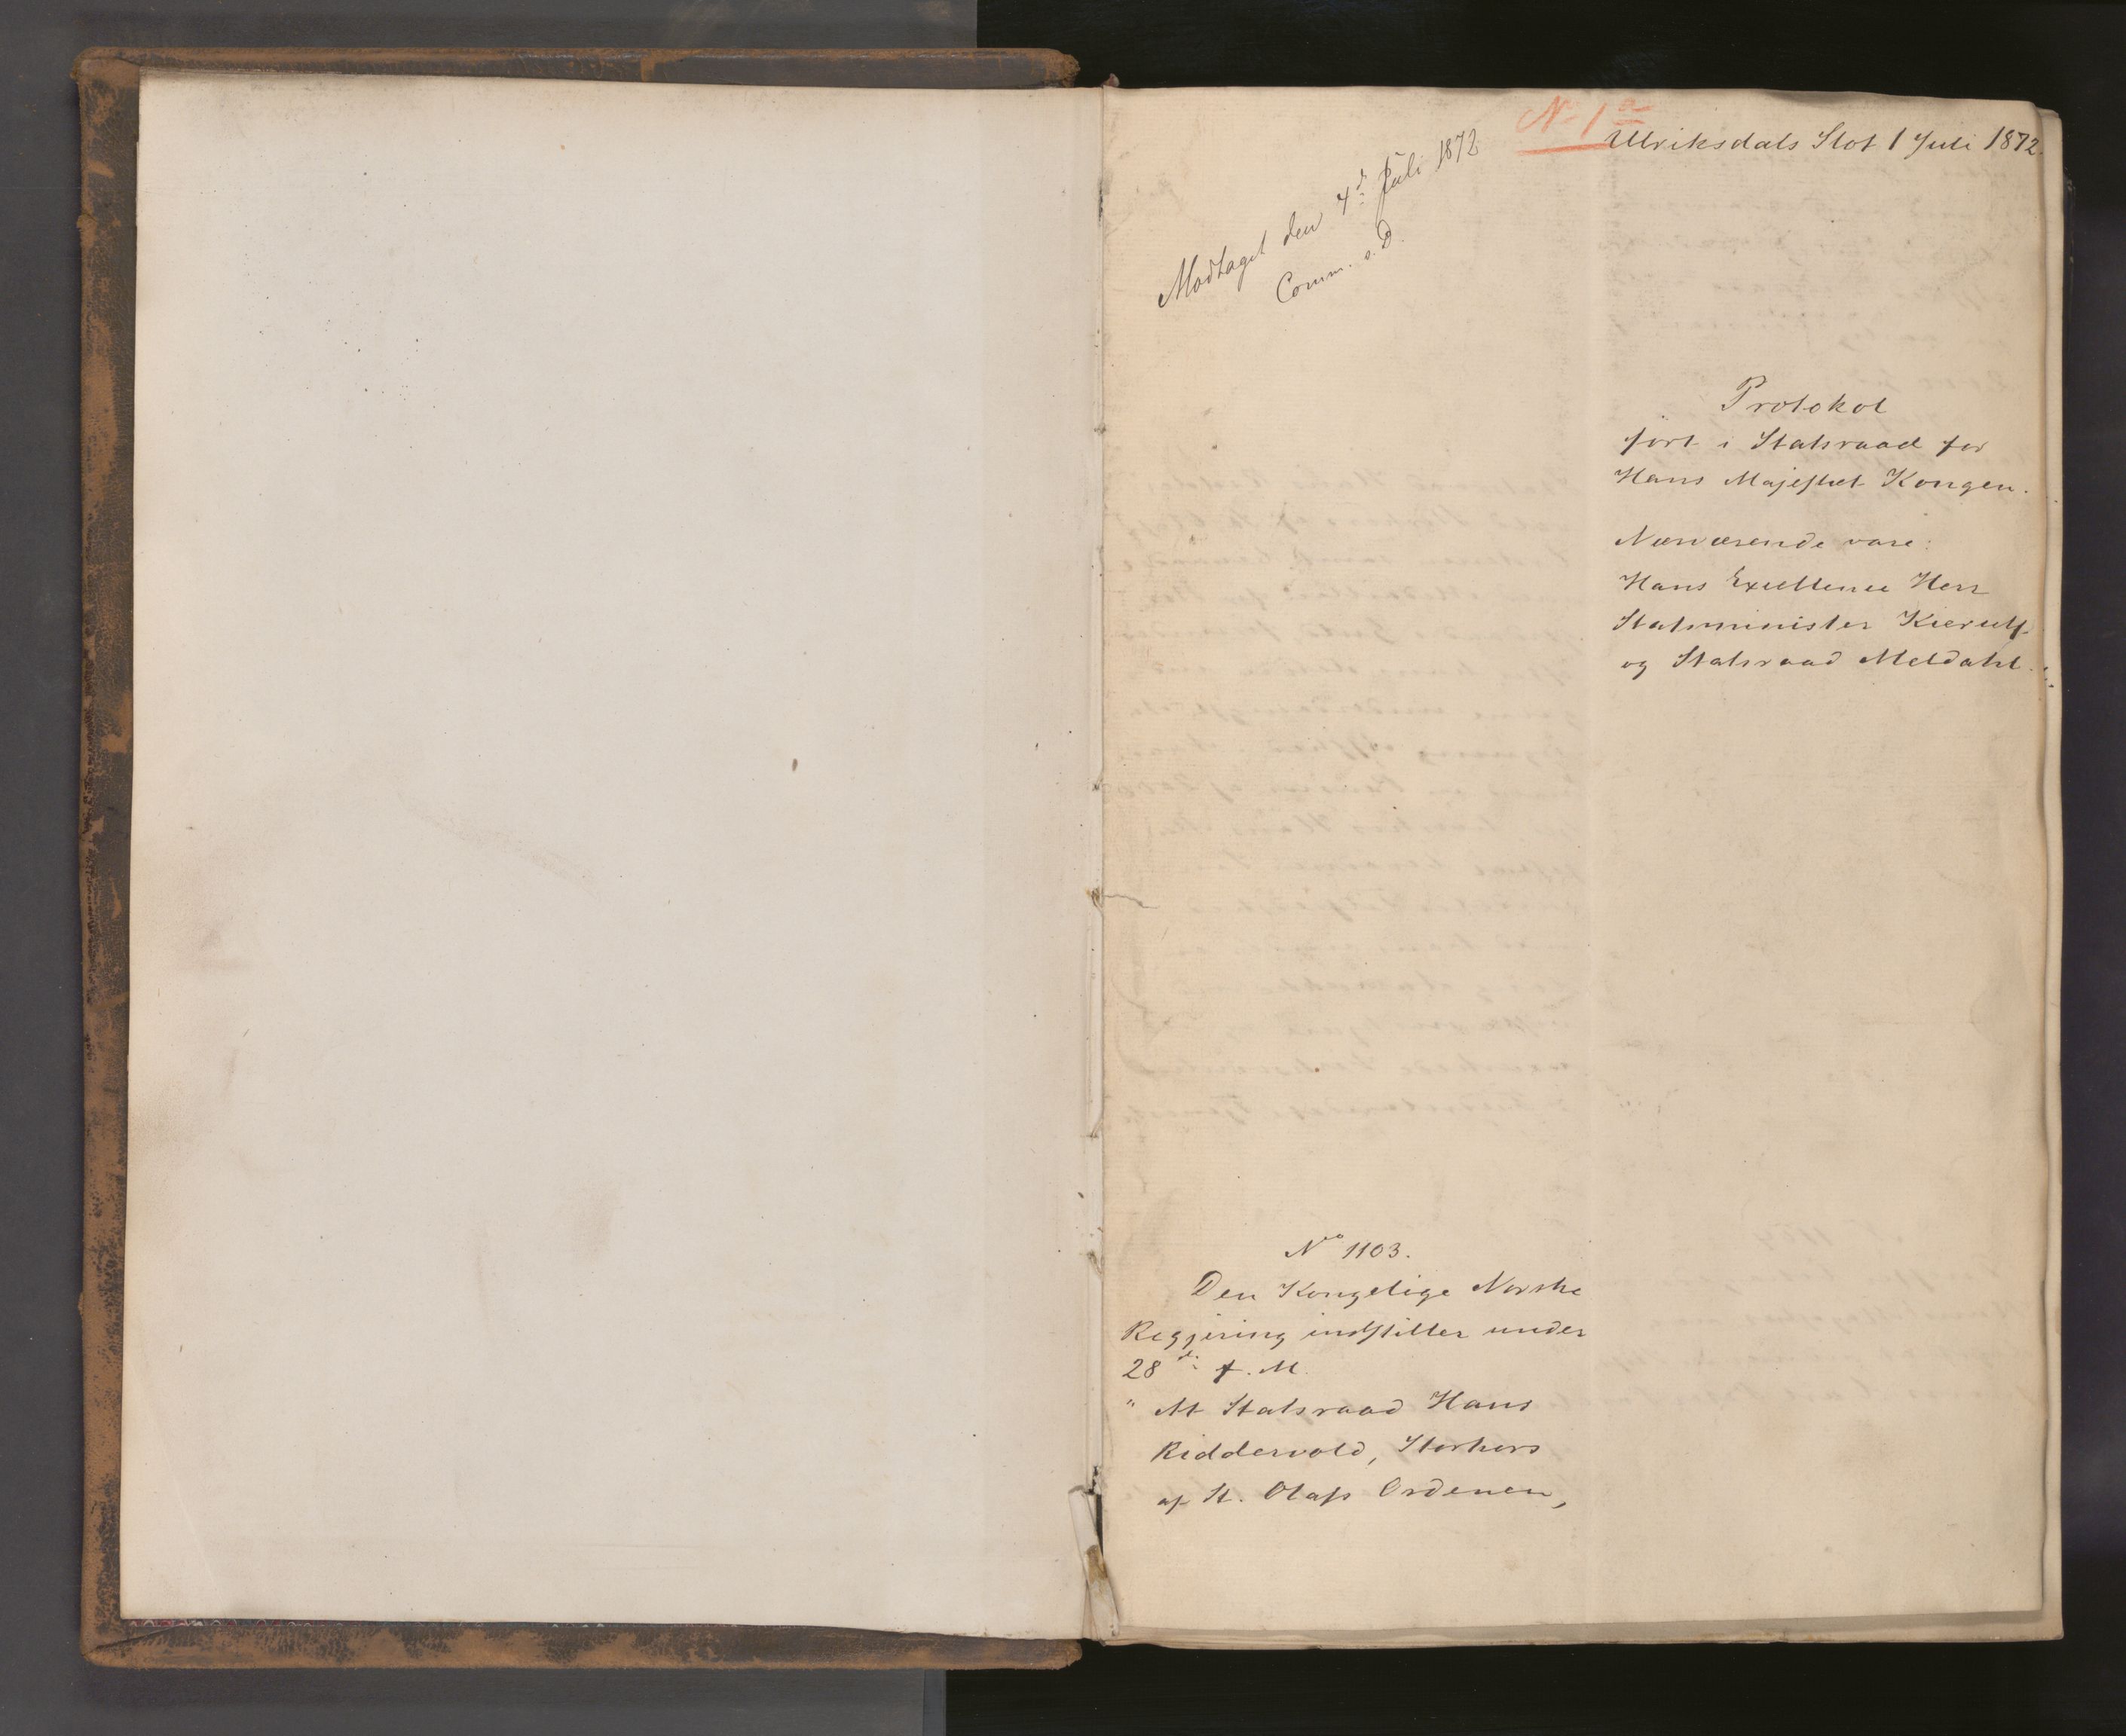 No 1 a
Ulriksdals Slot 1 Juli 1872.
Modtaget den 4d Juli 1872
Comm. s. D.
Protokol
ført i Statsraad for
Hans Majestæt Kongen.
Nærværende vare:
Hans Excellence Herr
Statsminister Kierulf
og Statsraad Meldahl.
No 1103.
Den Kongelige Norske
Regjering indstiller under
28de f. M.
" At Statsraad Hans
Riddervold, Storkors
af St. Olafs Ordenen,